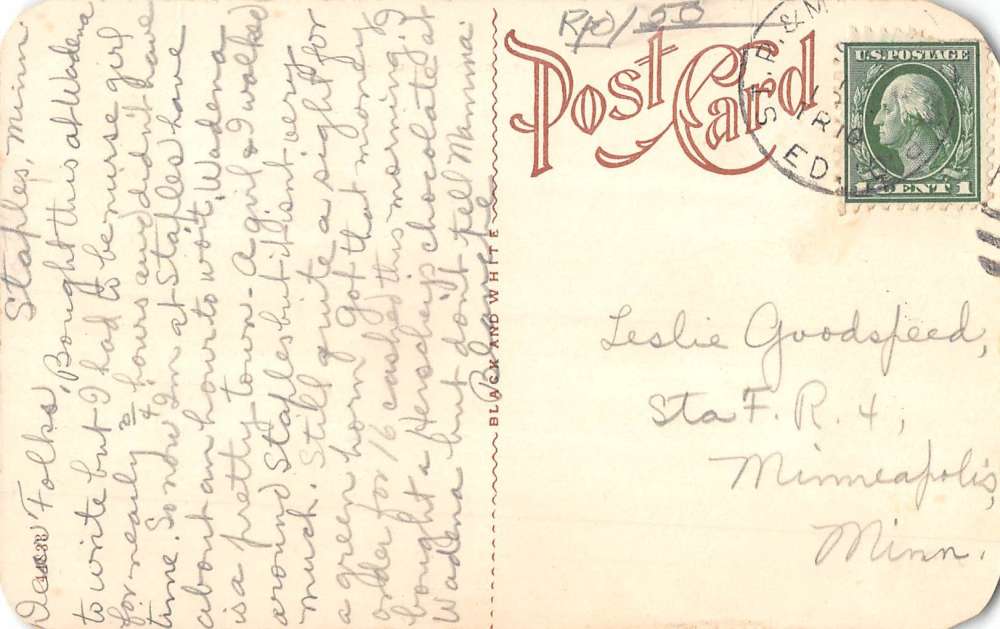 Staples, Minn
Dear Folks, Bought this at Wadena
to write but I had to be nurse girl
for nearly hours and didn't have
time. So now I'm at Staples have
about an hour to wait. Wadena
is a pretty town - A girl & I walked
around Staples but it isn't very
much. Still quite a sight for
a green horn. Got that money
order for 16 cashed this morning. I
bought a Hershey's chocolate at
Wadena but don't tell Mamma
Blanche
RPO/ 50
Post Card
U.S. POSTAGE
1 CENT 1
ST. P. & M
TR 10
ED
BLACK AND WHITE
Leslie Goodspeed,
Sta F. R. 4,
Minneapolis,
Minn.